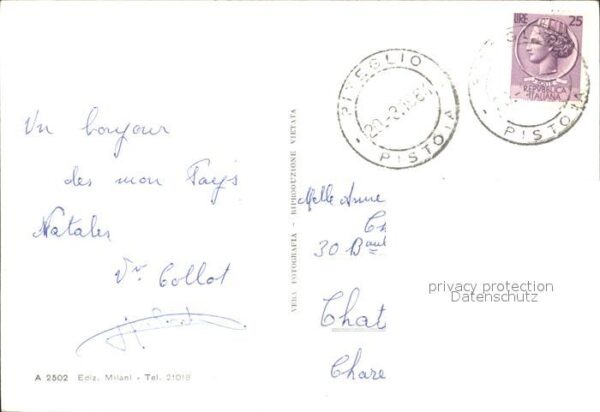 Un bonjour
des mon Pays
Natales
Vr Collot
A 2502 Ediz. Milani - Tel. 21019
VERA FOTOGRAFIA - RIPRODUZIONE VIETATA
PITEGLIO
PISTOIA
LIRE 25
REPUBBLICA
ITALIANA
PISTOIA
Melle Anne
Ch
30 Boul
Chat
Chare
privacy protection
Datenschutz